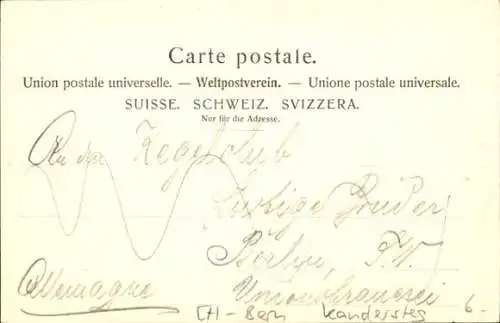 Carte postale.
Union postale universelle. — Weltpostverein. — Unione postale universale.
SUISSE. SCHWEIZ. SVIZZERA.
Nur für die Adresse.
An den Kegelclub
Lustige Brüder
Berlin, S.W.
Allemagne Unionsbrauerei
CH - Bern Kandersteg 6.-